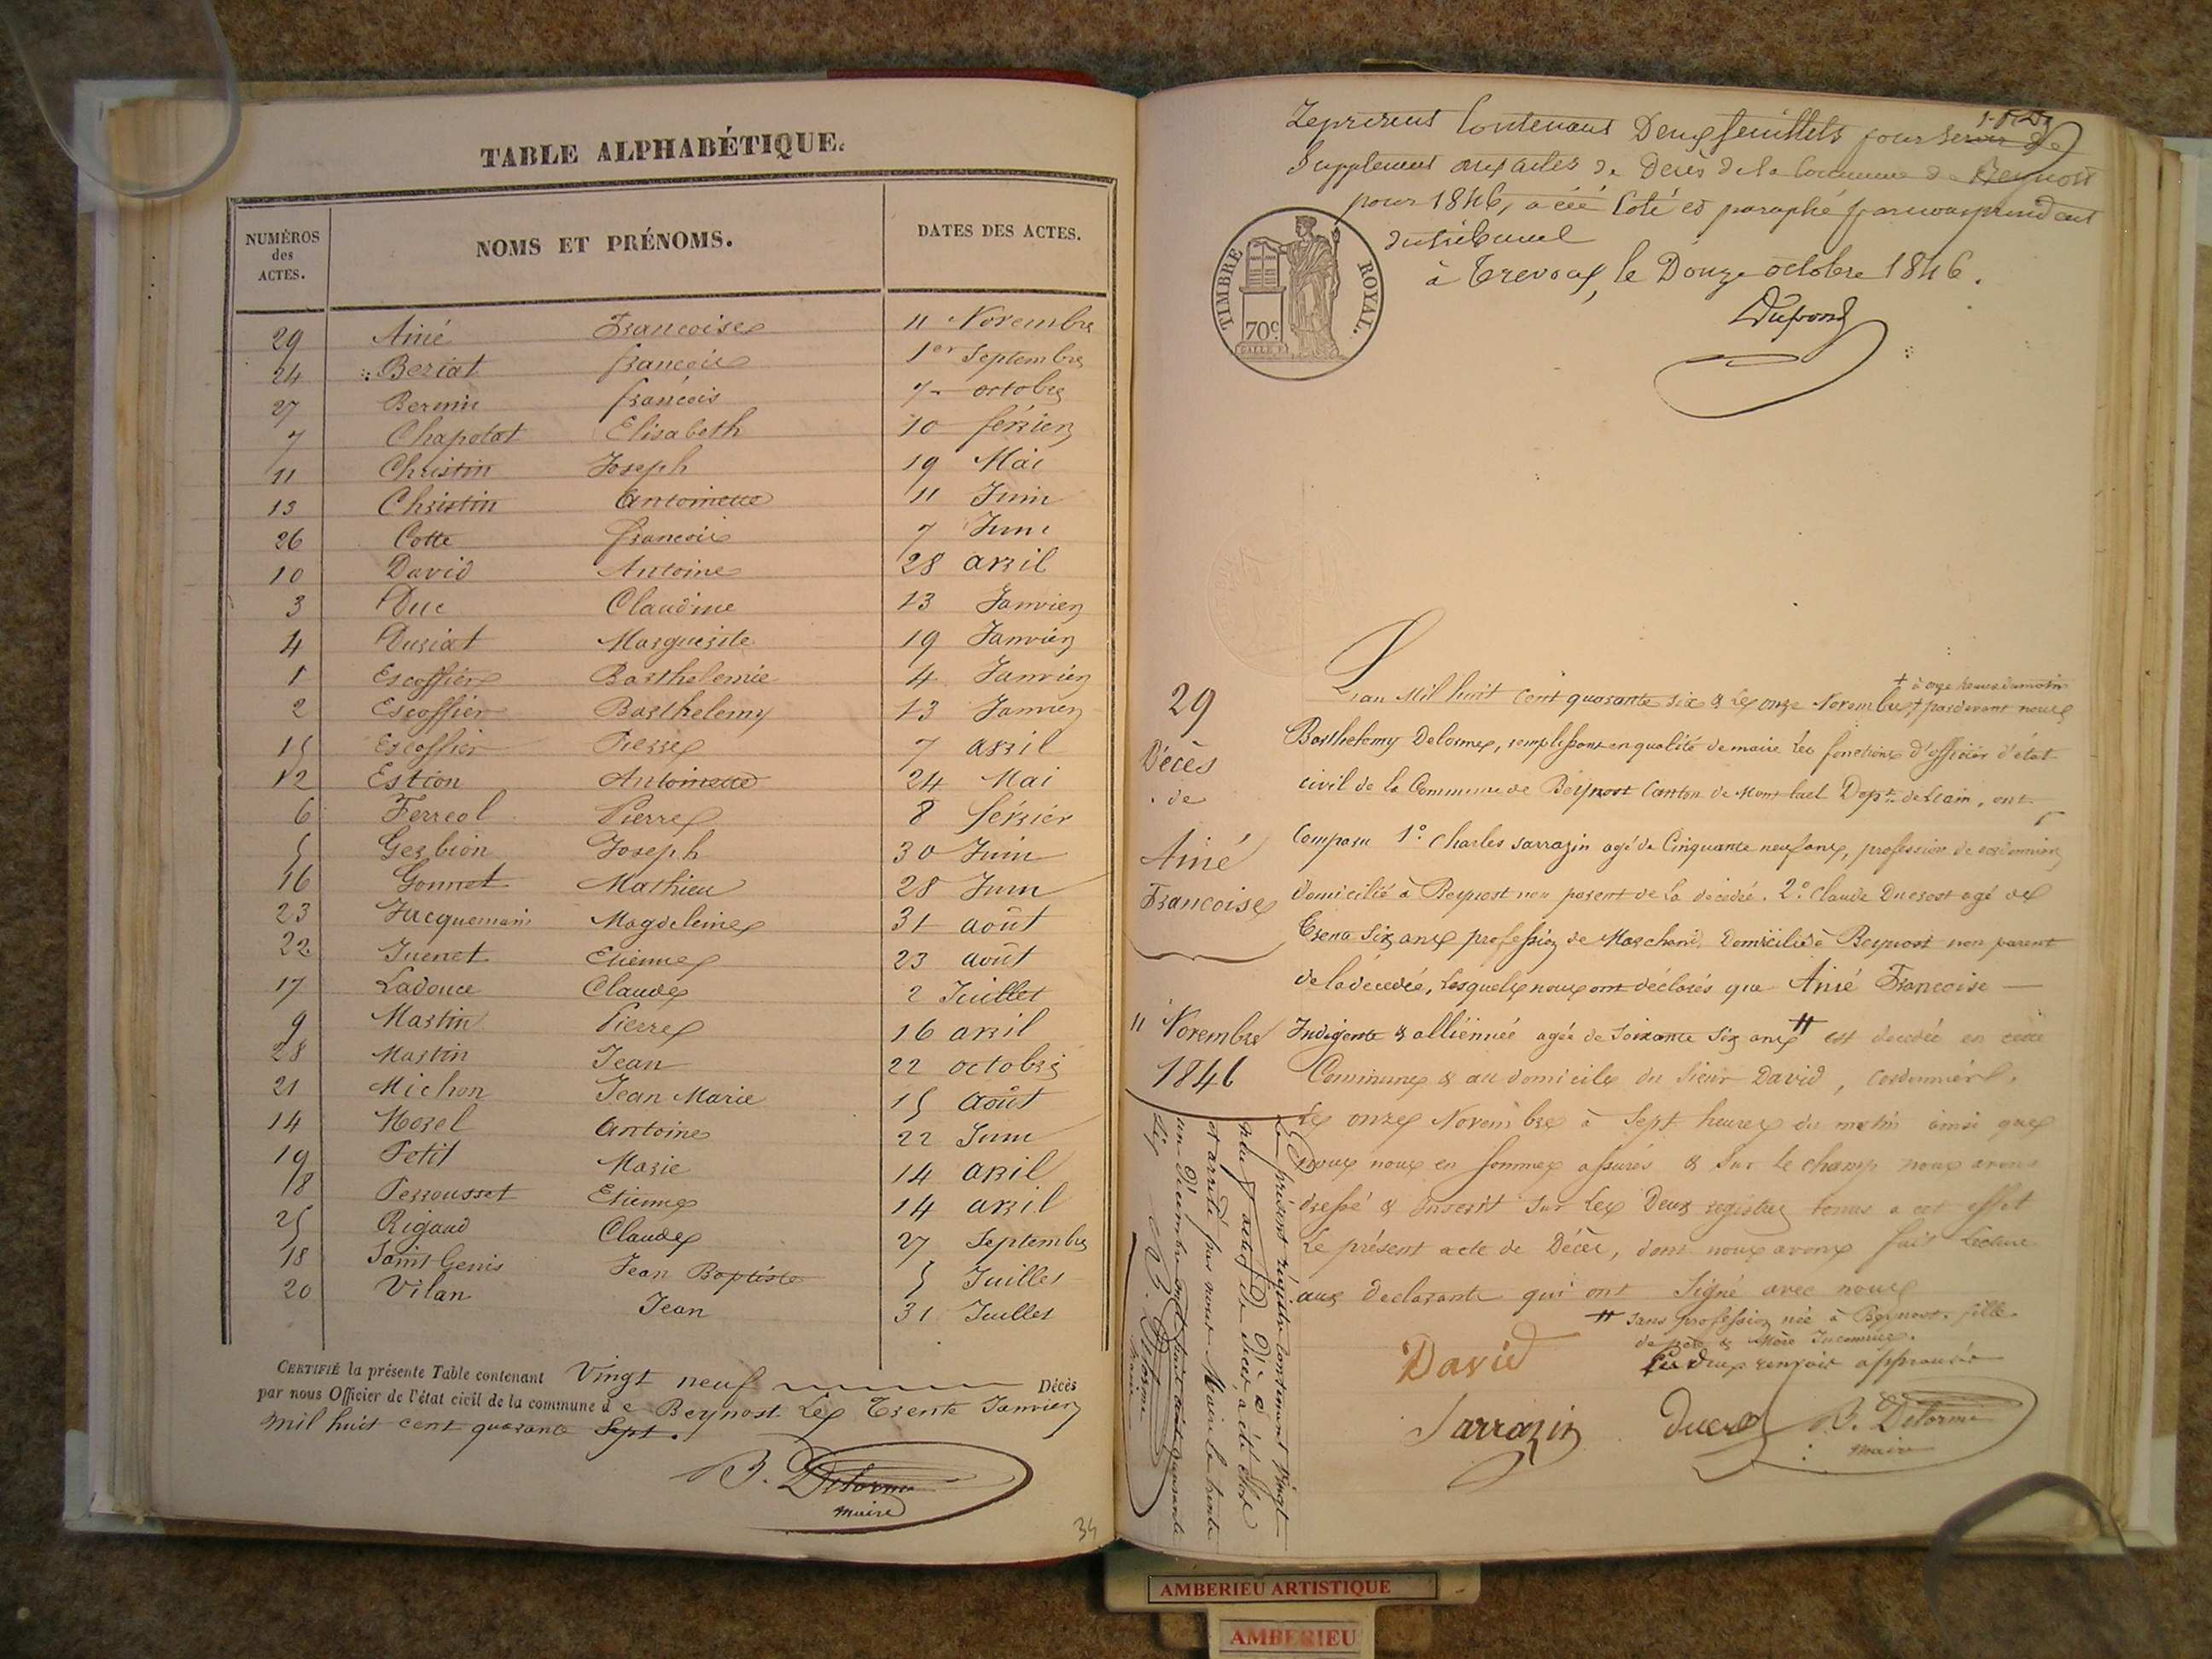 TABLE ALPHABÉTIQUE.
NUMÉROS des ACTES.
NOMS ET PRÉNOMS.
DATES DES ACTES.
29 Ainé Francoise 11 Novembre
24 Beriat francois 1er Septembre
27 francois 7 octobre
7 Chapotat Elisabeth 10 février
11 Christin Joseph 19 Mai
13 Christin Antoinette 11 Juin
26 Cotte francois 7 Juin
10 David Antoine 28 avril
3 Duc Claudine 13 Janvier
4 Duriat Marguerite 19 Janvier
1 Escoffier Barthelemie 4 Janvier
2 Escoffier Barthelemy 13 Janvier
15 Escoffier Pierre 7 avril
12 Estion Antoinette 24 Mai
6 Ferreol Pierre 8 février
5 Gerbion Joseph 30 Juin
16 Gonnet Mathieu 28 Juin
23 Jacquemain Magdeleine 31 août
22 Juenet Etienne 23 août
17 Ladouce Claude 2 Juillet
9 Martin Pierre 16 avril
28 Martin Jean 22 octobre
21 Michon Jean Marie 15 Août
14 Morel Antoine 22 Juin
19 Petit Marie 14 avril
18 Perrousset Etienne 14 avril
25 Rigaud Claude 27 Septembre
18 Saint Genis Jean Baptiste 5 Juillet
20 Vilan Jean 31 Juillet
CERTIFIÉ la présente Table contenant Vingt neuf Décès
par nous Officier de l'état civil de la commune de Beynost Le Trente Janvier
mil huit cent quarante Sept.
B. Delorme
maire
34
Le présent Contenant Deux feuillets pour servir de
Supplement aux actes de Décès de la Commune de Beynost
pour 1846, a été Coté et paraphé par nous president
du tribunal
à Trevoux, le Douze octobre 1846.
Dupond
TIMBRE ROYAL.
70c
29
Décès
de
Ainé
Francoise
11 Novembre
1846
+ à onze heures du matin
L'an Mil huit cent quarante six & Le onze Novembre, + pardevant nous
Barthelemy Delorme, remplissant en qualité de maire les fonctions d'officier d'état
civil de la Commune de Beynost Canton de Montluel Dept. de L'ain, ont
Comparu 1° Charles Sarrazin agé de Cinquante neuf ans, profession de cordonnier
domicilié à Beynost non parent de la décédée. 2° Claude Ducrost agé de
Trente Six ans profession de Marchand Domicilié à Beynost non parent
de la décédée, Lesquels nous ont déclarés que Ainé Francoise —
Indigente & alliennée agée de Soixante Six ans # est décédée en cette
Commune & au domicile du Sieur David, Cordonnier,
Le onze Novembre à Sept heures du matin ainsi que
nous nous en sommes assurés & Sur Le champ nous avons
dressé & Inscrit Sur Les Deux registres tenus a cet effet
Le présent acte de Décès, dont nous avons fait Lecture
aux declarants qui ont Signé avec nous
# Sans profession née à Beynost. fille
de père & Mère Inconnus.
Les deux renvois approuvés
David
Sarrazin
B. Delorme
maire
Le présent registre contenant Vingt
neuf actes de décès a été Clos
et arrêté par nous Maire le trente
un Décembre mil huit cent quarante
six
B. Delorme
maire
AMBERIEU ARTISTIQUE
AMBERIEU